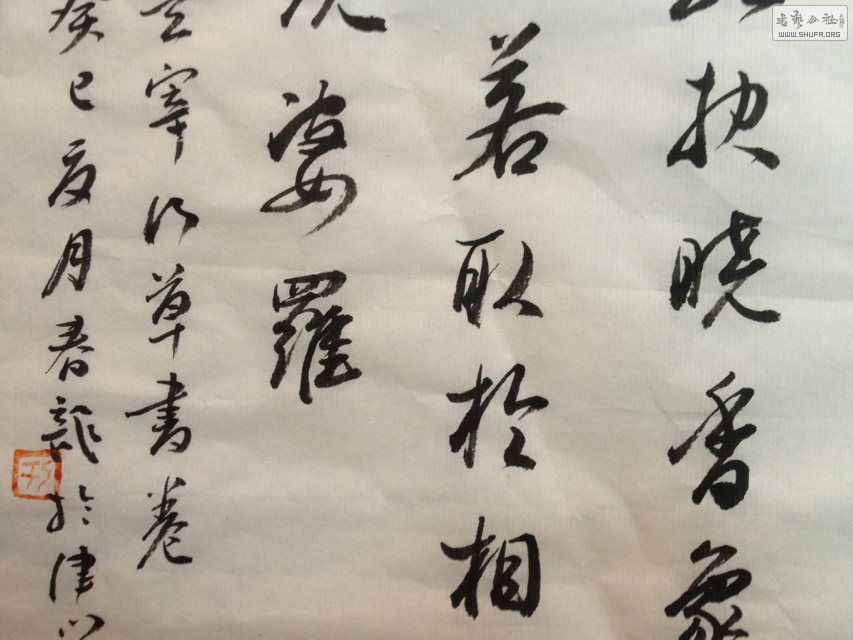 抉曉香象
若取於相
婆羅
宰行草書卷
癸巳夏月春龍於津門
书艺公社
WWW.SHUFA.ORG